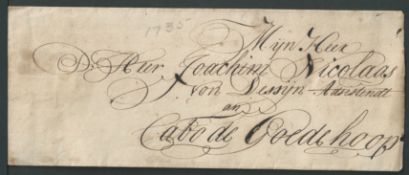 1735
Mijn Heer
D. Heer Joachim Nicolaas
von Dessijn Adsistendt
an
Cabo de Goede hoop